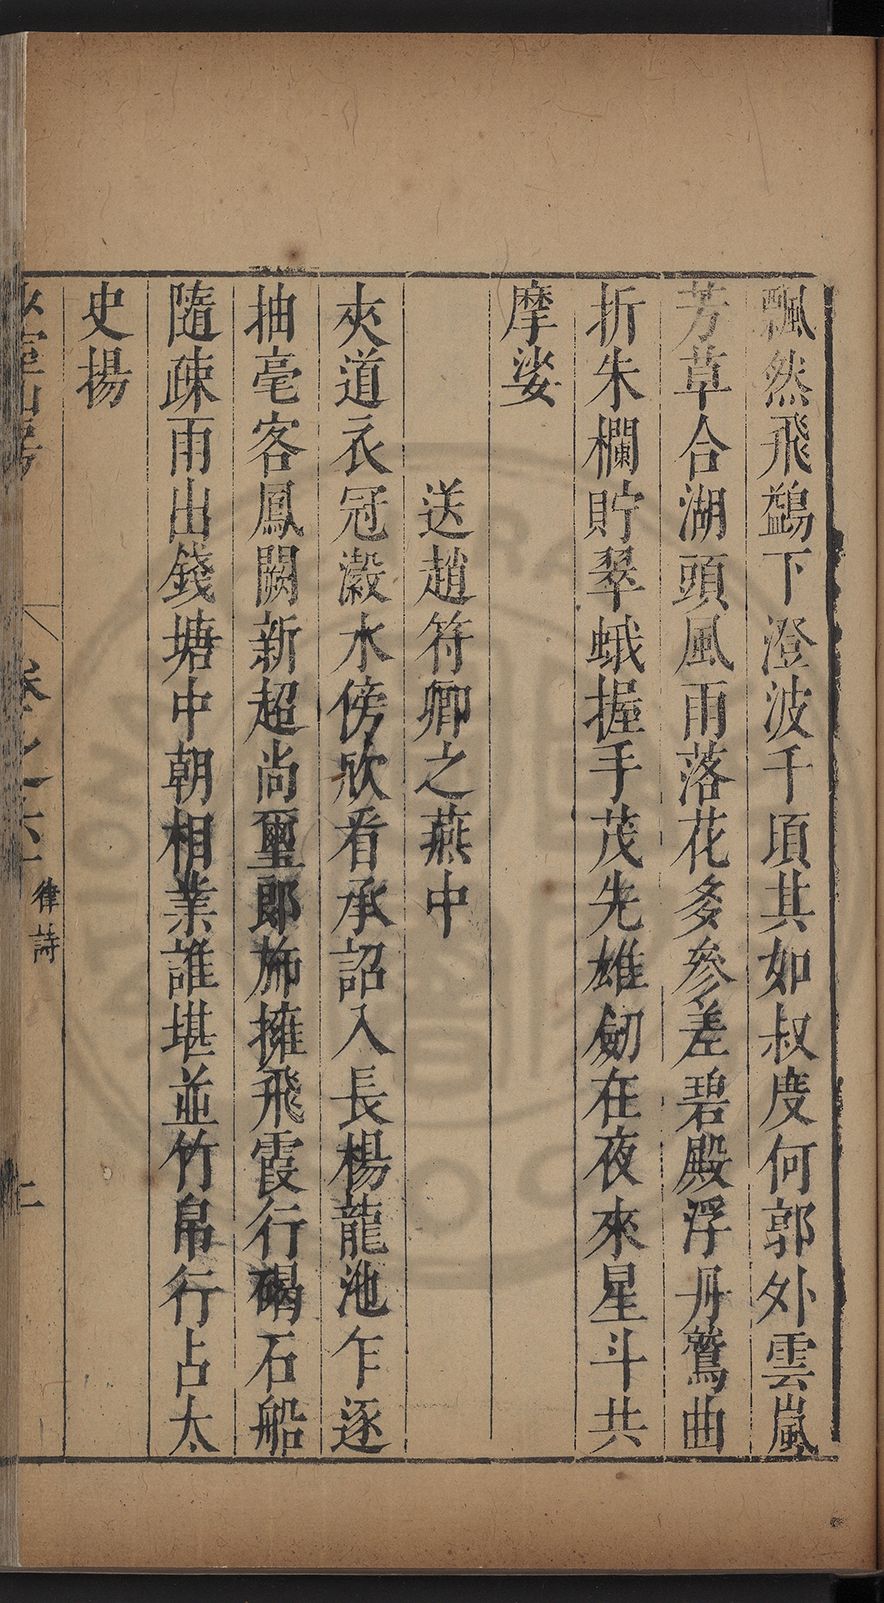 飄然飛鷁下澄波千頃其如叔度何郭外雲嵐
芳草合湖頭風雨落花多參差碧殿浮丹鷲曲
折朱欄貯翠蛾握手茂先雄劒在夜來星斗共
摩娑
送趙符卿之燕中
夾道衣冠瀫水傍欣看承詔入長楊龍池乍逐
抽毫客鳳闕新超尚璽郎斾擁飛霞行碣石船
隨疎雨出錢塘中朝相業誰堪並竹帛行占太
史揚
卷之六十 律詩 二